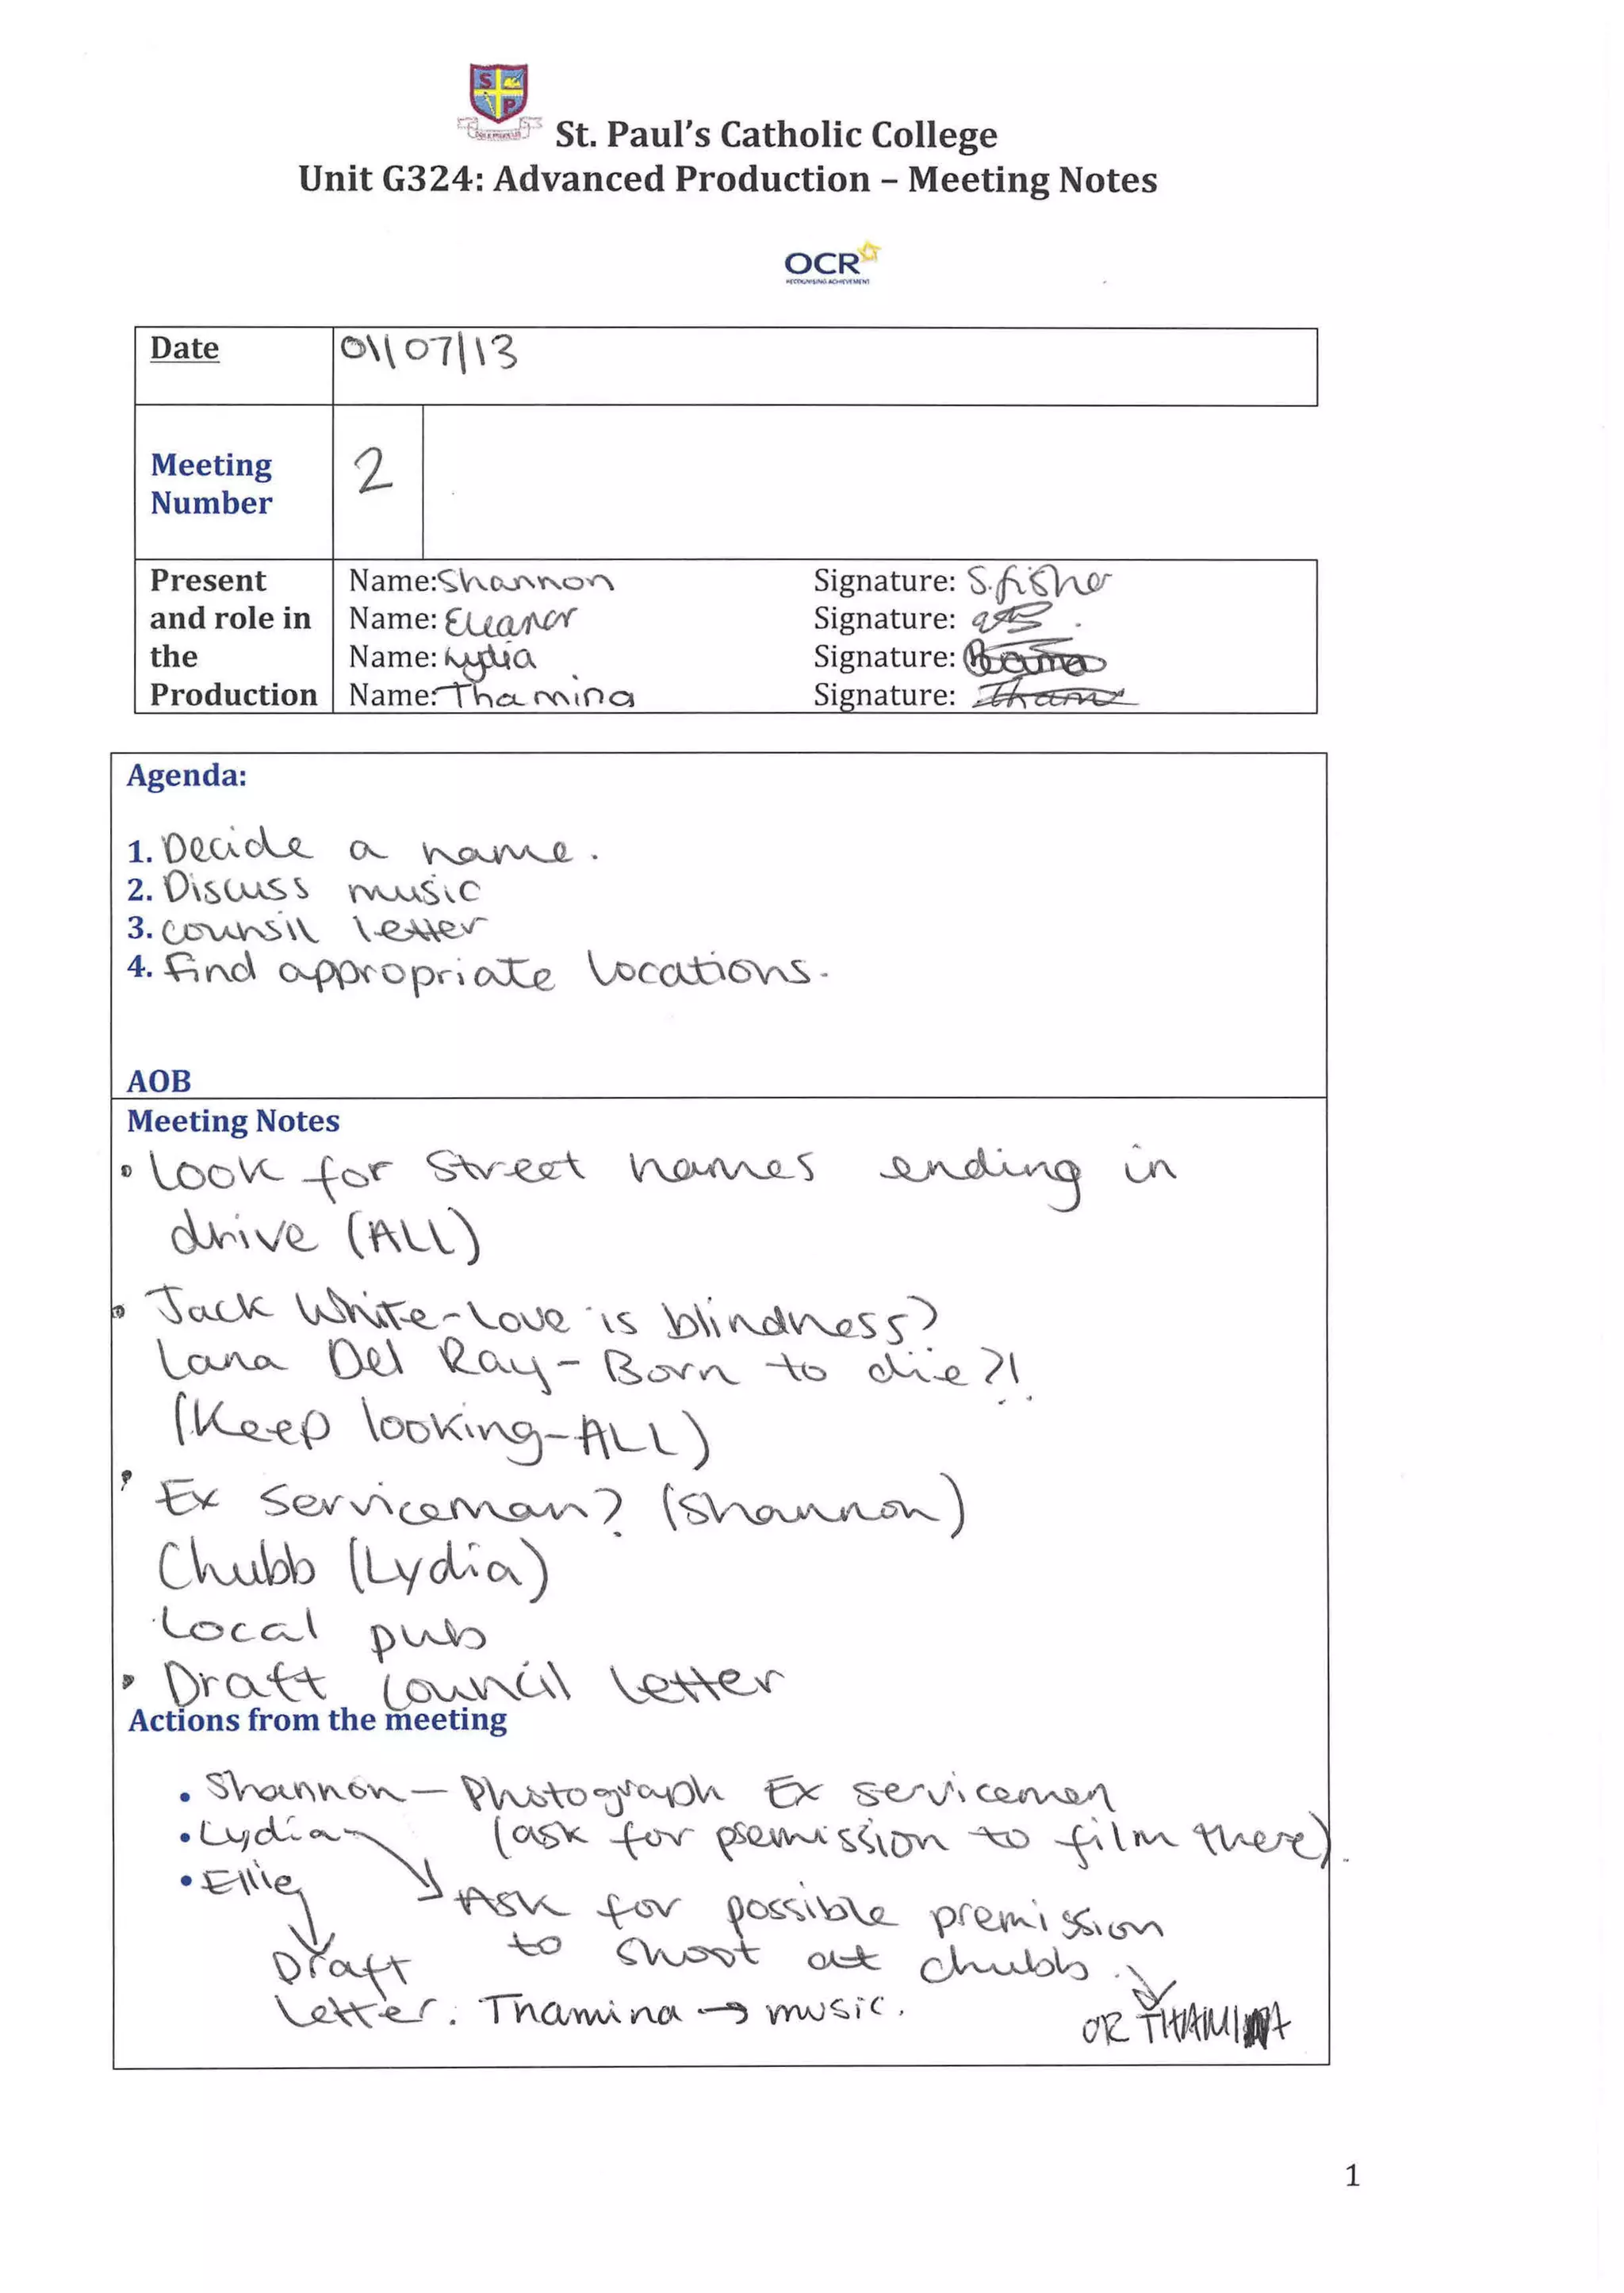 St. Paul's Catholic College
Unit G324: Advanced Production – Meeting Notes
OCR
RECOGNISING ACHIEVEMENT
Date 01/07/13
Meeting Number 2
Present and role in the Production
Name: Shannon Signature: S.fisher
Name: Eleanor Signature:
Name: Lydia Signature:
Name: Thamina Signature:
Agenda:
1. Decide a name.
2. Discuss music
3. counsil letter
4. Find appropriate locations.
AOB
Meeting Notes
• Look for Street names ending in
drive (ALL)
• Jack White - Love is blindness?
Lana Del Ray - Born to die?!
(Keep looking - ALL)
• Ex Serviceman? (Shannon)
Chubb (Lydia)
Local pub
• Draft Council Letter
Actions from the meeting
• Shannon — Photograph Ex servicemen
• Lydia (ask for psemission to film there).
• Ellie
Ask for possible premission
Draft to shoot at chubb.
Letter. Thamina → music.
OR THAMINA
1